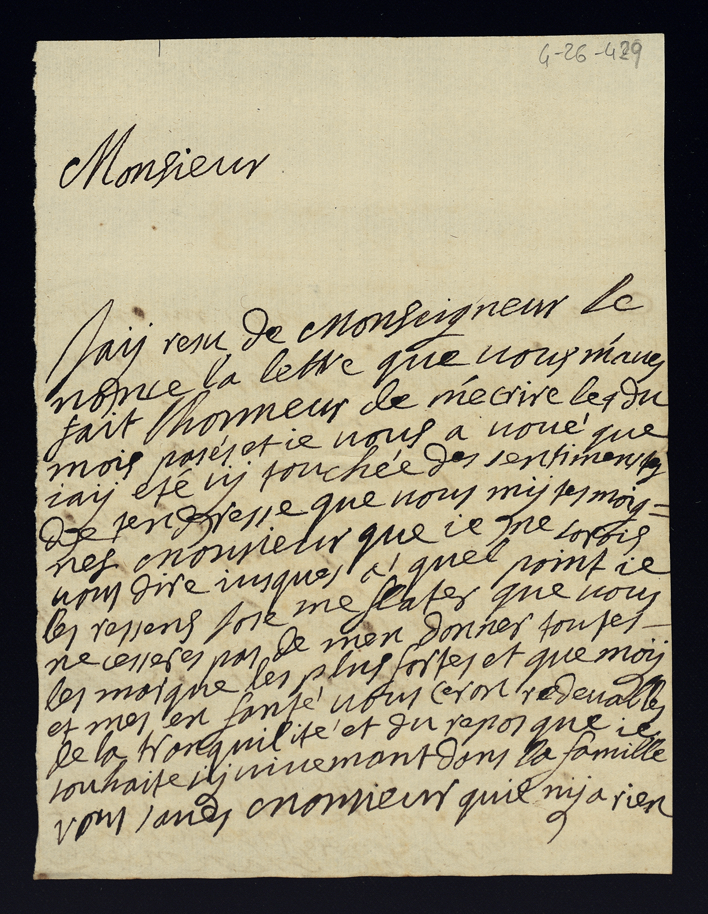 4-26-429
Monsieur
Jaij resu de Monseigneur le
nonce la lettre que vous m'aues
fait lhonneur de m'ecrire le 9 du
mois pasés et ie vous a voué que
iaij eté sy touchée des sentiments
de tendresse que vous mij tesmoig=
nes Monsieur que ie ne sorois
vous dire iusques a quel point ie
les ressens Jose me flater que vous
ne cesseres pas de men donner toutes
les marque les plus fortes et que moij
et mes en fants vous ceron redeuables
de la tranquilité et du repos que ie
souhaite sij viuemant dans la famille
vous saues Monsieur quil nij a rien